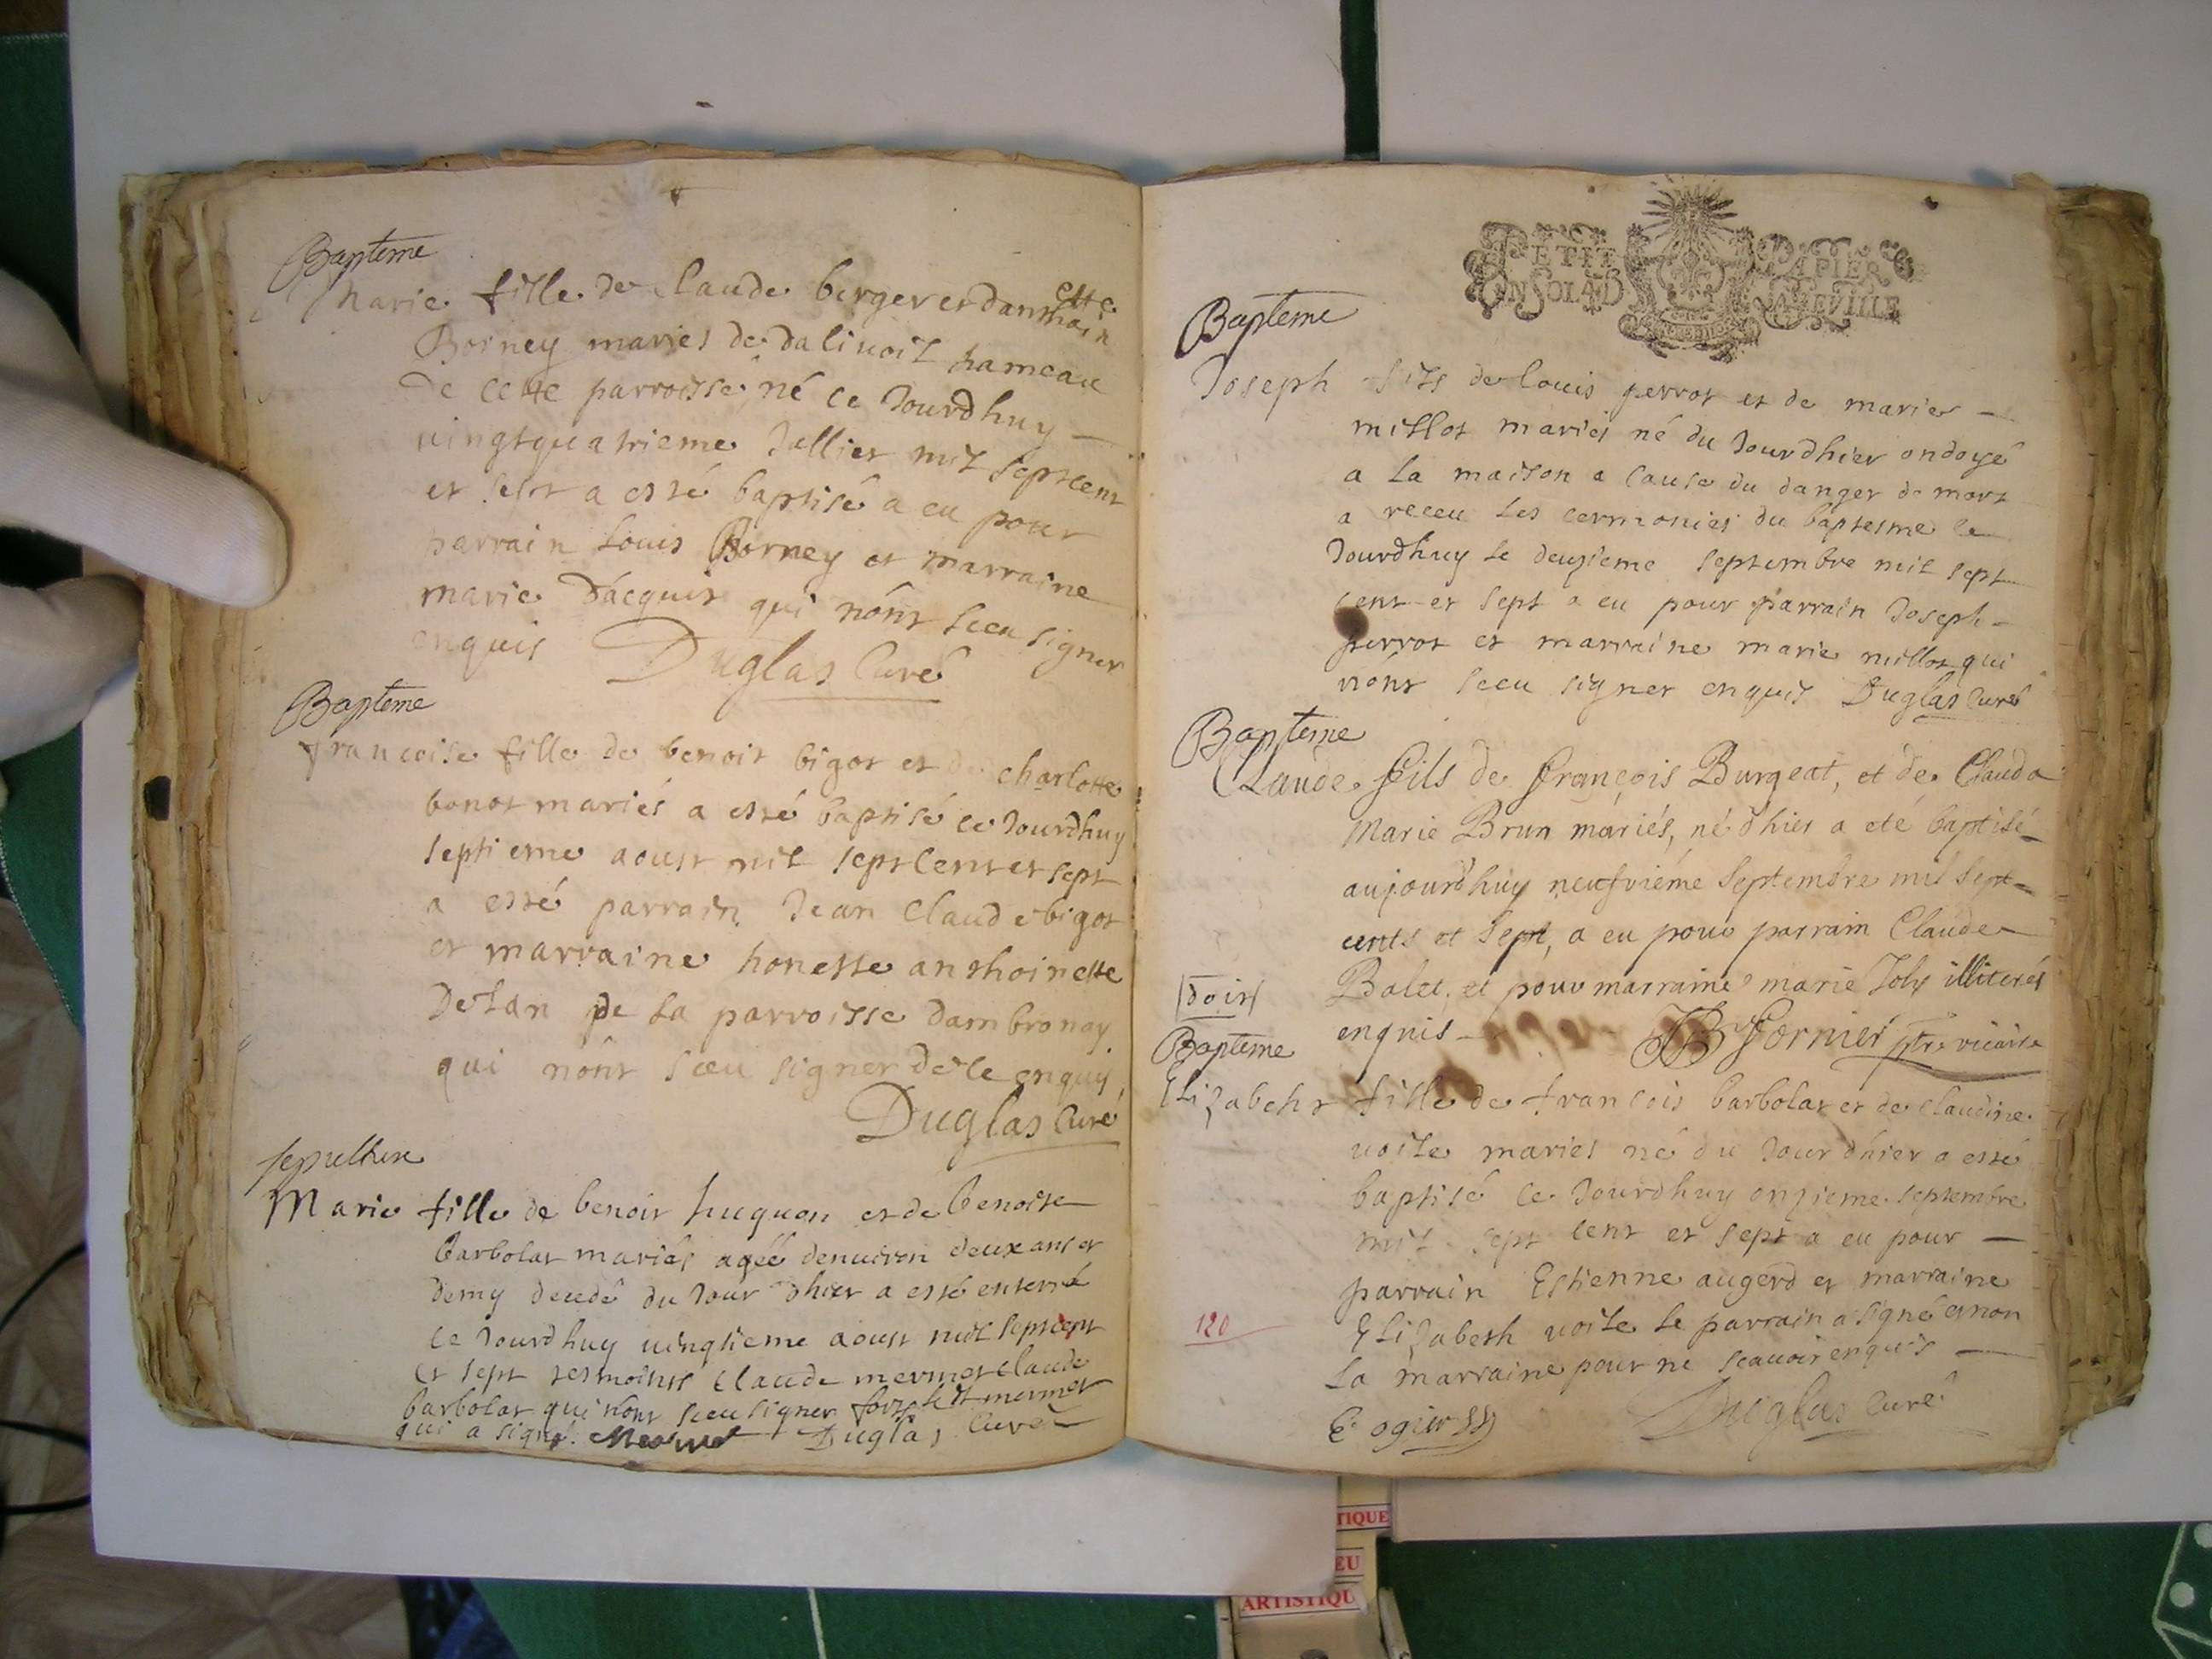 Bapteme
Marie fille de Claude berger et danthoinette
Borney maries de dalivoit hameau
de cette parroisse, né ce Jourdhuy
vingtquatrieme Julliet mil septcent
et sept a esté baptisé a eu pour
parrain Louis Borney et marraine
marie Dacquit qui nônt sceu signer
enquis Duglas Curé
Bapteme
francoise fille de benoit bigot et de charlotte
bonot mariés a esté baptisé ce Jourdhuy
septieme aoust mil septcent et sept
a esté parrain Jean Claude bigot
et marraine honeste anthoinette
Delan de La parroisse dambronay
qui nônt sceu signer de ce enquis
Duglas Curé
sepulture
Marie fille de benoit huguon et de benoite
barbolat mariés agéé denuiron deux ans et
demy decedé du Jour dhier a esté enterré
ce Jourdhuy uingtieme aoust mil septcent
et sept tesmoins Claude mermet Claude
barbolat qui nônt sceu signer fors le dt mermet
qui a signé. Mermet Duglas Curé
PETIT PAPIER
EN SOL 4D VNE FEVILLE
Bapteme
Joseph fils de Louis perrot et de marie
millot mariés né du Jourdhier ondoyé
a La maison a Cause du danger de mort
a receu Les cermonies du baptesme ce
Jourdhuy Le deuzieme septembre mil sept
cent et sept a eu pour parrain Joseph
perrot et marraine marie millot qui
nônt sceu signer enquis Duglas Curé
Bapteme
Claude fils de François Burgeat, et de Clauda
Marie Brun máriés, né dhier a eté baptisé
aujourdhuy neufviéme Septembre mil Sept
cents et Sept, a eu pour parrain Claude
Bolet, et pour marraine marie Joly illiterés
doit
enquis B Fornier ptre vicaire
Bapteme
Elizabeht fille de francois barbolat et de Claudine
voite maries né du Jour dhier a esté
baptisé ce Jourdhuy onzieme septembre
mil sept cent et sept a eu pour
parrain Estienne augerd et marraine
Elizabeth voite Le parrain a signé et non
120
La marraine pour ne scauoir enquis
E ogier Duglas Curé
TIQUE
EU
ARTISTIQU